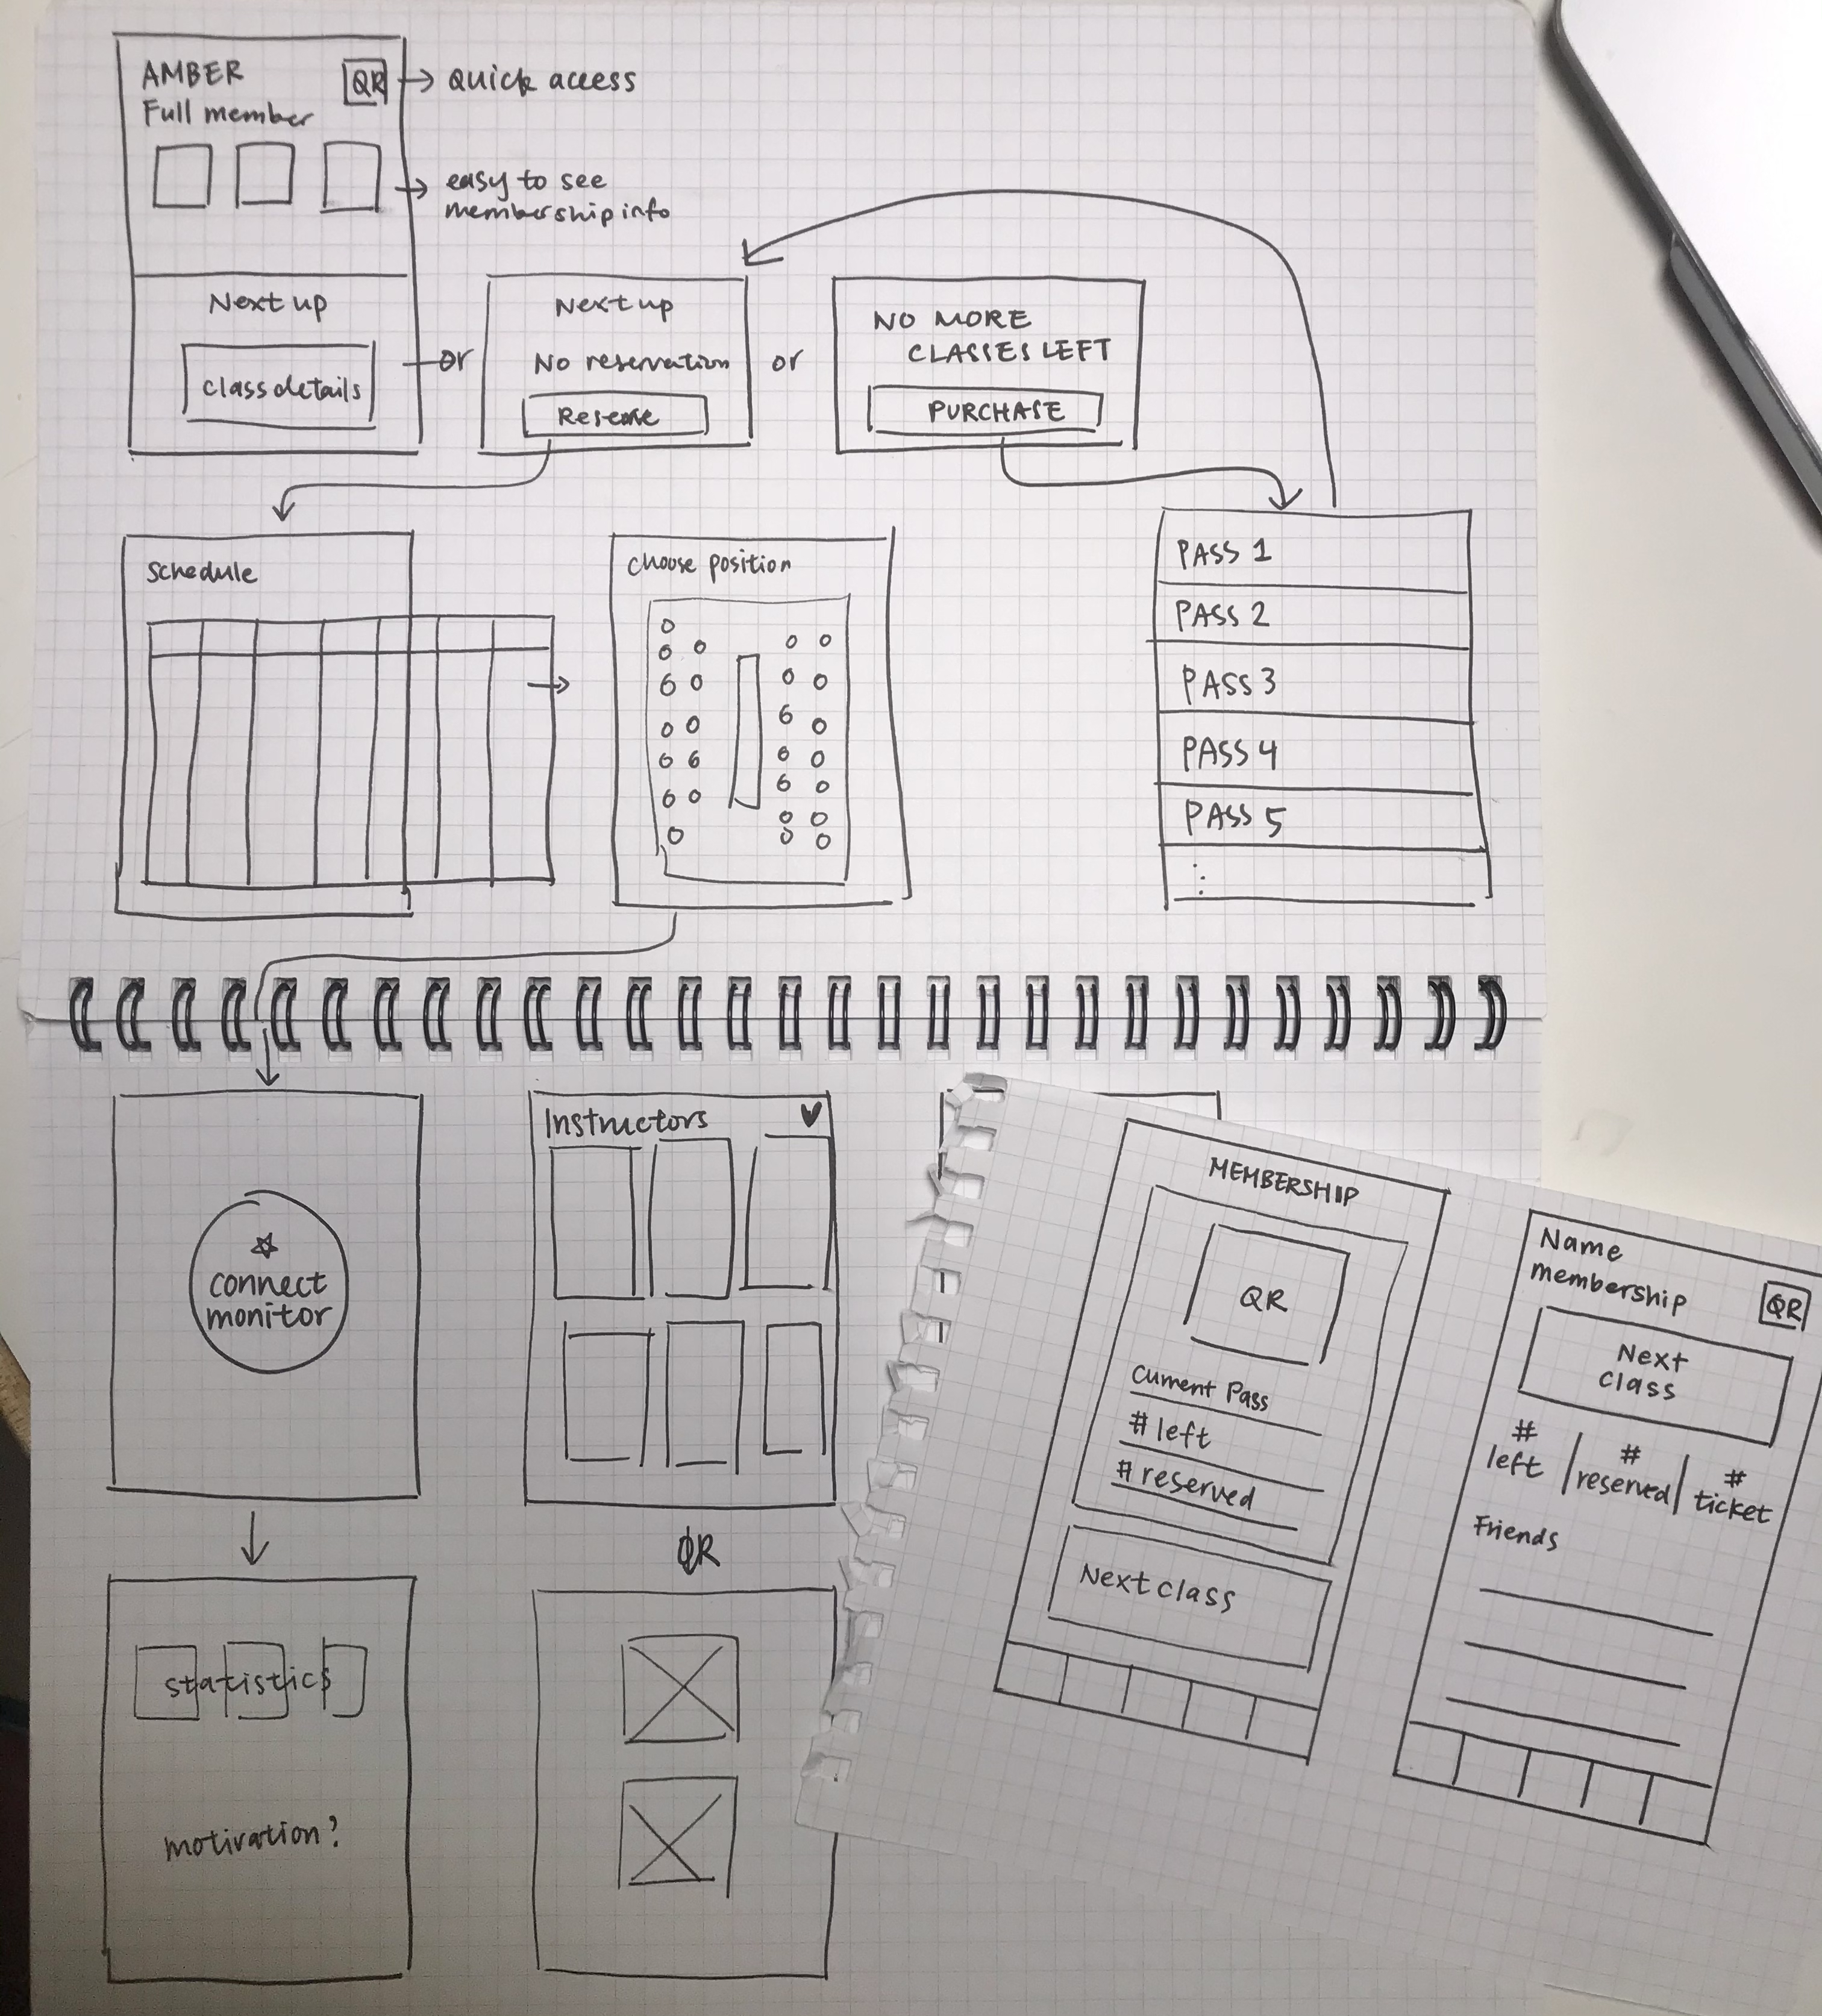 AMBER
QR → Quick access
Full member
→ easy to see
membership info
Next up
class details
or
Next up
No reservation
Reserve
or
NO MORE
CLASSES LEFT
PURCHASE
schedule
choose position
PASS 1
PASS 2
PASS 3
PASS 4
PASS 5
connect
monitor
statistics
motivation?
Instructors
OR
MEMBERSHIP
QR
Current Pass
# left
# reserved
Next class
Name
membership
QR
Next
class
# left
# reserved
# ticket
Friends